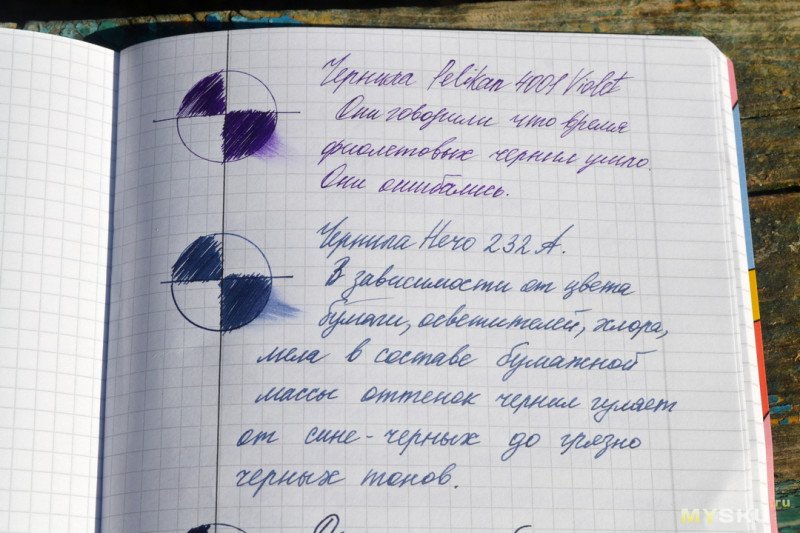 Чернила Pelikan 4001 Violet
Они говорили что время
фиолетовых чернил ушло.
Они ошибались.
Чернила Hero 232 А.
В зависимости от цвета
бумаги, осветлителей, хлора,
мела в составе бумажной
массы оттенок чернил гуляет
от сине-черных до грязно
черных тонов.
MYSKU.ru